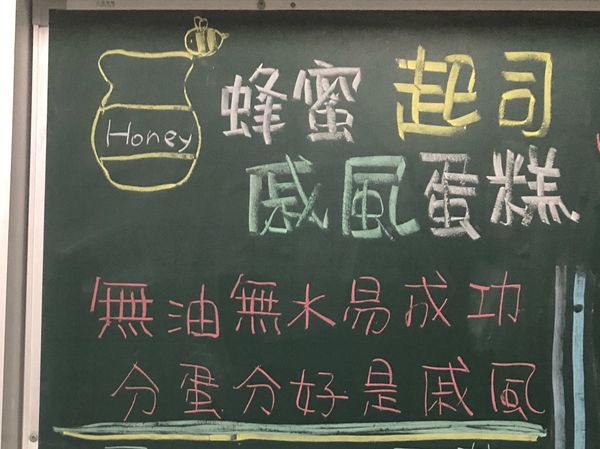 Honey
蜂蜜起司
戚風蛋糕
無油無水易成功
分蛋分好是戚風